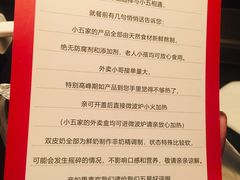 与小五相遇，
就餐前有几句悄悄话告诉您：
小五家的产品全部由天然食材新鲜熬制，
绝无防腐剂和添加剂，老人小孩均可放心食用。
外卖小哥接单量大，
特别高峰期如产品到您手里觉得不够热了，
亲可开盖后直接微波炉小火加热
（小五家的外卖盒均可进微波炉请亲放心加热）
双皮奶全部为鲜奶制作非奶精调制，状态特殊比较软，
可能会发生摇碎的情况，不影响口感和营养，敬请亲亲谅解。